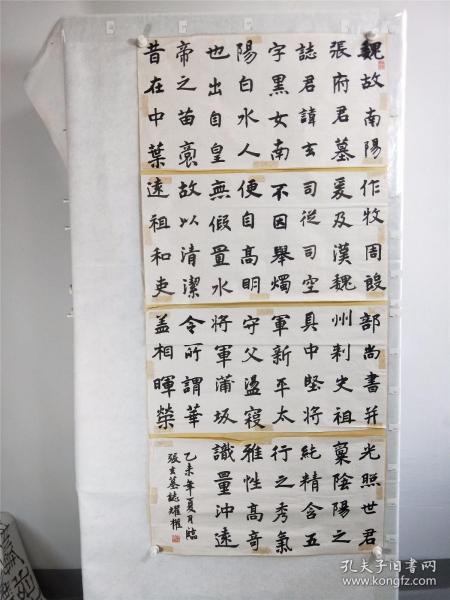 魏故南陽
張府君墓
誌君諱玄
字黑女南
陽白水人
也出自皇
帝之苗裔
昔在中葉
作牧周殷
爰及漢魏
司徒司空
不因舉燭
便自高明
無假置水
故以清潔
遠祖和吏
部尚書并
州刺史祖
具中堅將
軍新平太
守父盪寇
將軍蒲坂
令所謂華
蓋相暉榮
光照世君
稟陰陽之
純精含五
行之秀氣
雅性高奇
識量沖遠
乙未年夏月臨
張玄墓誌耀權
孔夫子旧书网
www.kongfz.com